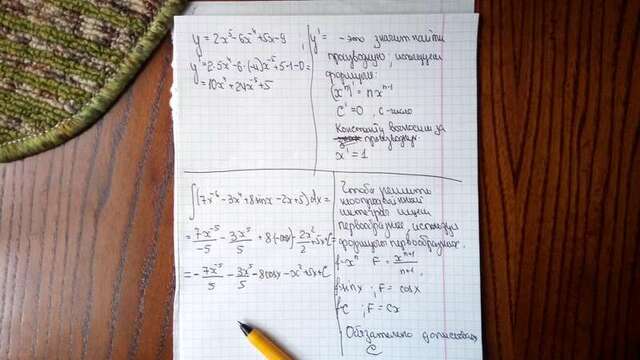 y = 2x⁵ - 6x⁻⁴ + 5x - 9
y' = 2·5x⁴ - 6·(-4)x⁻⁵ + 5·1 - 0 =
= 10x⁴ + 24x⁻⁵ + 5
y' = - это значит найти
производную, используя
формулы:
(xⁿ)' = nxⁿ⁻¹
C' = 0, c - число
Константу выносим за
производную
x' = 1
∫(7x⁻⁶ - 3x⁴ + 8sinx - 2x + 5)dx =
= 7x⁻⁵/-5 - 3x⁵/5 + 8(-cosx) - 2x²/2 + 5x + C =
= - 7x⁻⁵/5 - 3x⁵/5 - 8cosx - x² + 5x + C
Чтобы решить
неопределённый
интеграл ищем
первообразные, используя
формулы первообразных.
f - xⁿ F = xⁿ⁺¹/n+1,
f - sinx ; F = cosx
f - C ; F = Cx
Обязательно дописываем
C